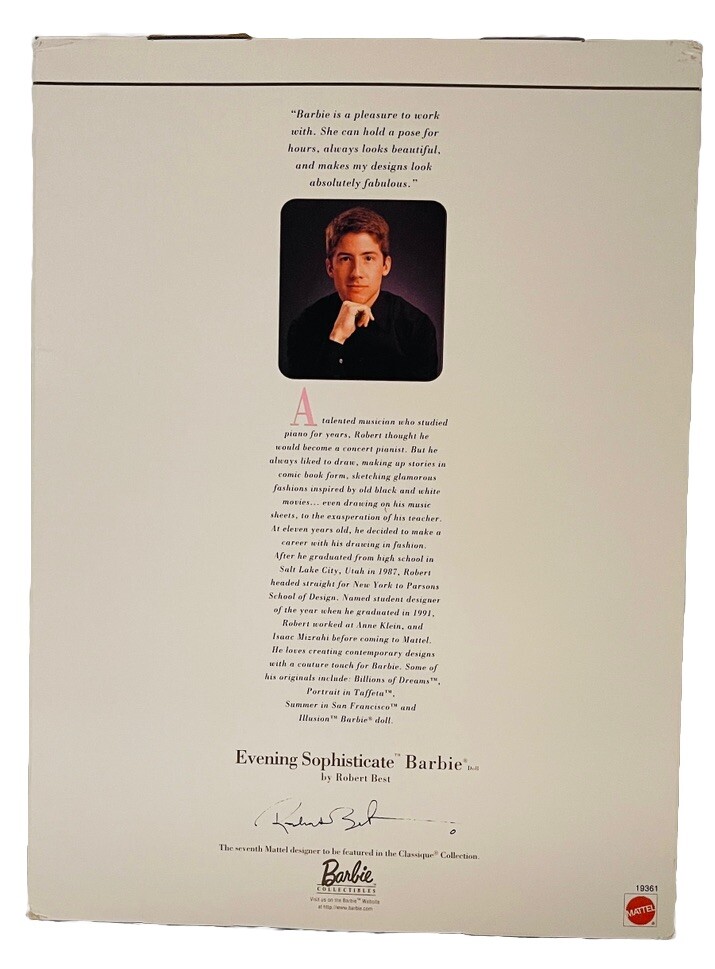 “Barbie is a pleasure to work
with. She can hold a pose for
hours, always looks beautiful,
and makes my designs look
absolutely fabulous.”
A talented musician who studied
piano for years, Robert thought he
would become a concert pianist. But he
always liked to draw, making up stories in
comic book form, sketching glamorous
fashions inspired by old black and white
movies... even drawing on his music
sheets, to the exasperation of his teacher.
At eleven years old, he decided to make a
career with his drawing in fashion.
After he graduated from high school in
Salt Lake City, Utah in 1987, Robert
headed straight for New York to Parsons
School of Design. Named student designer
of the year when he graduated in 1991,
Robert worked at Anne Klein, and
Isaac Mizrahi before coming to Mattel.
He loves creating contemporary designs
with a couture touch for Barbie. Some of
his originals include: Billions of Dreams™,
Portrait in Taffeta™,
Summer in San Francisco™ and
Illusion™ Barbie® doll.
Evening Sophisticate™ Barbie® Doll
by Robert Best
Robert Best
The seventh Mattel designer to be featured in the Classique® Collection.
Barbie
COLLECTIBLES
Visit us on the Barbie™ Website
at http://www.barbie.com
19361
MATTEL